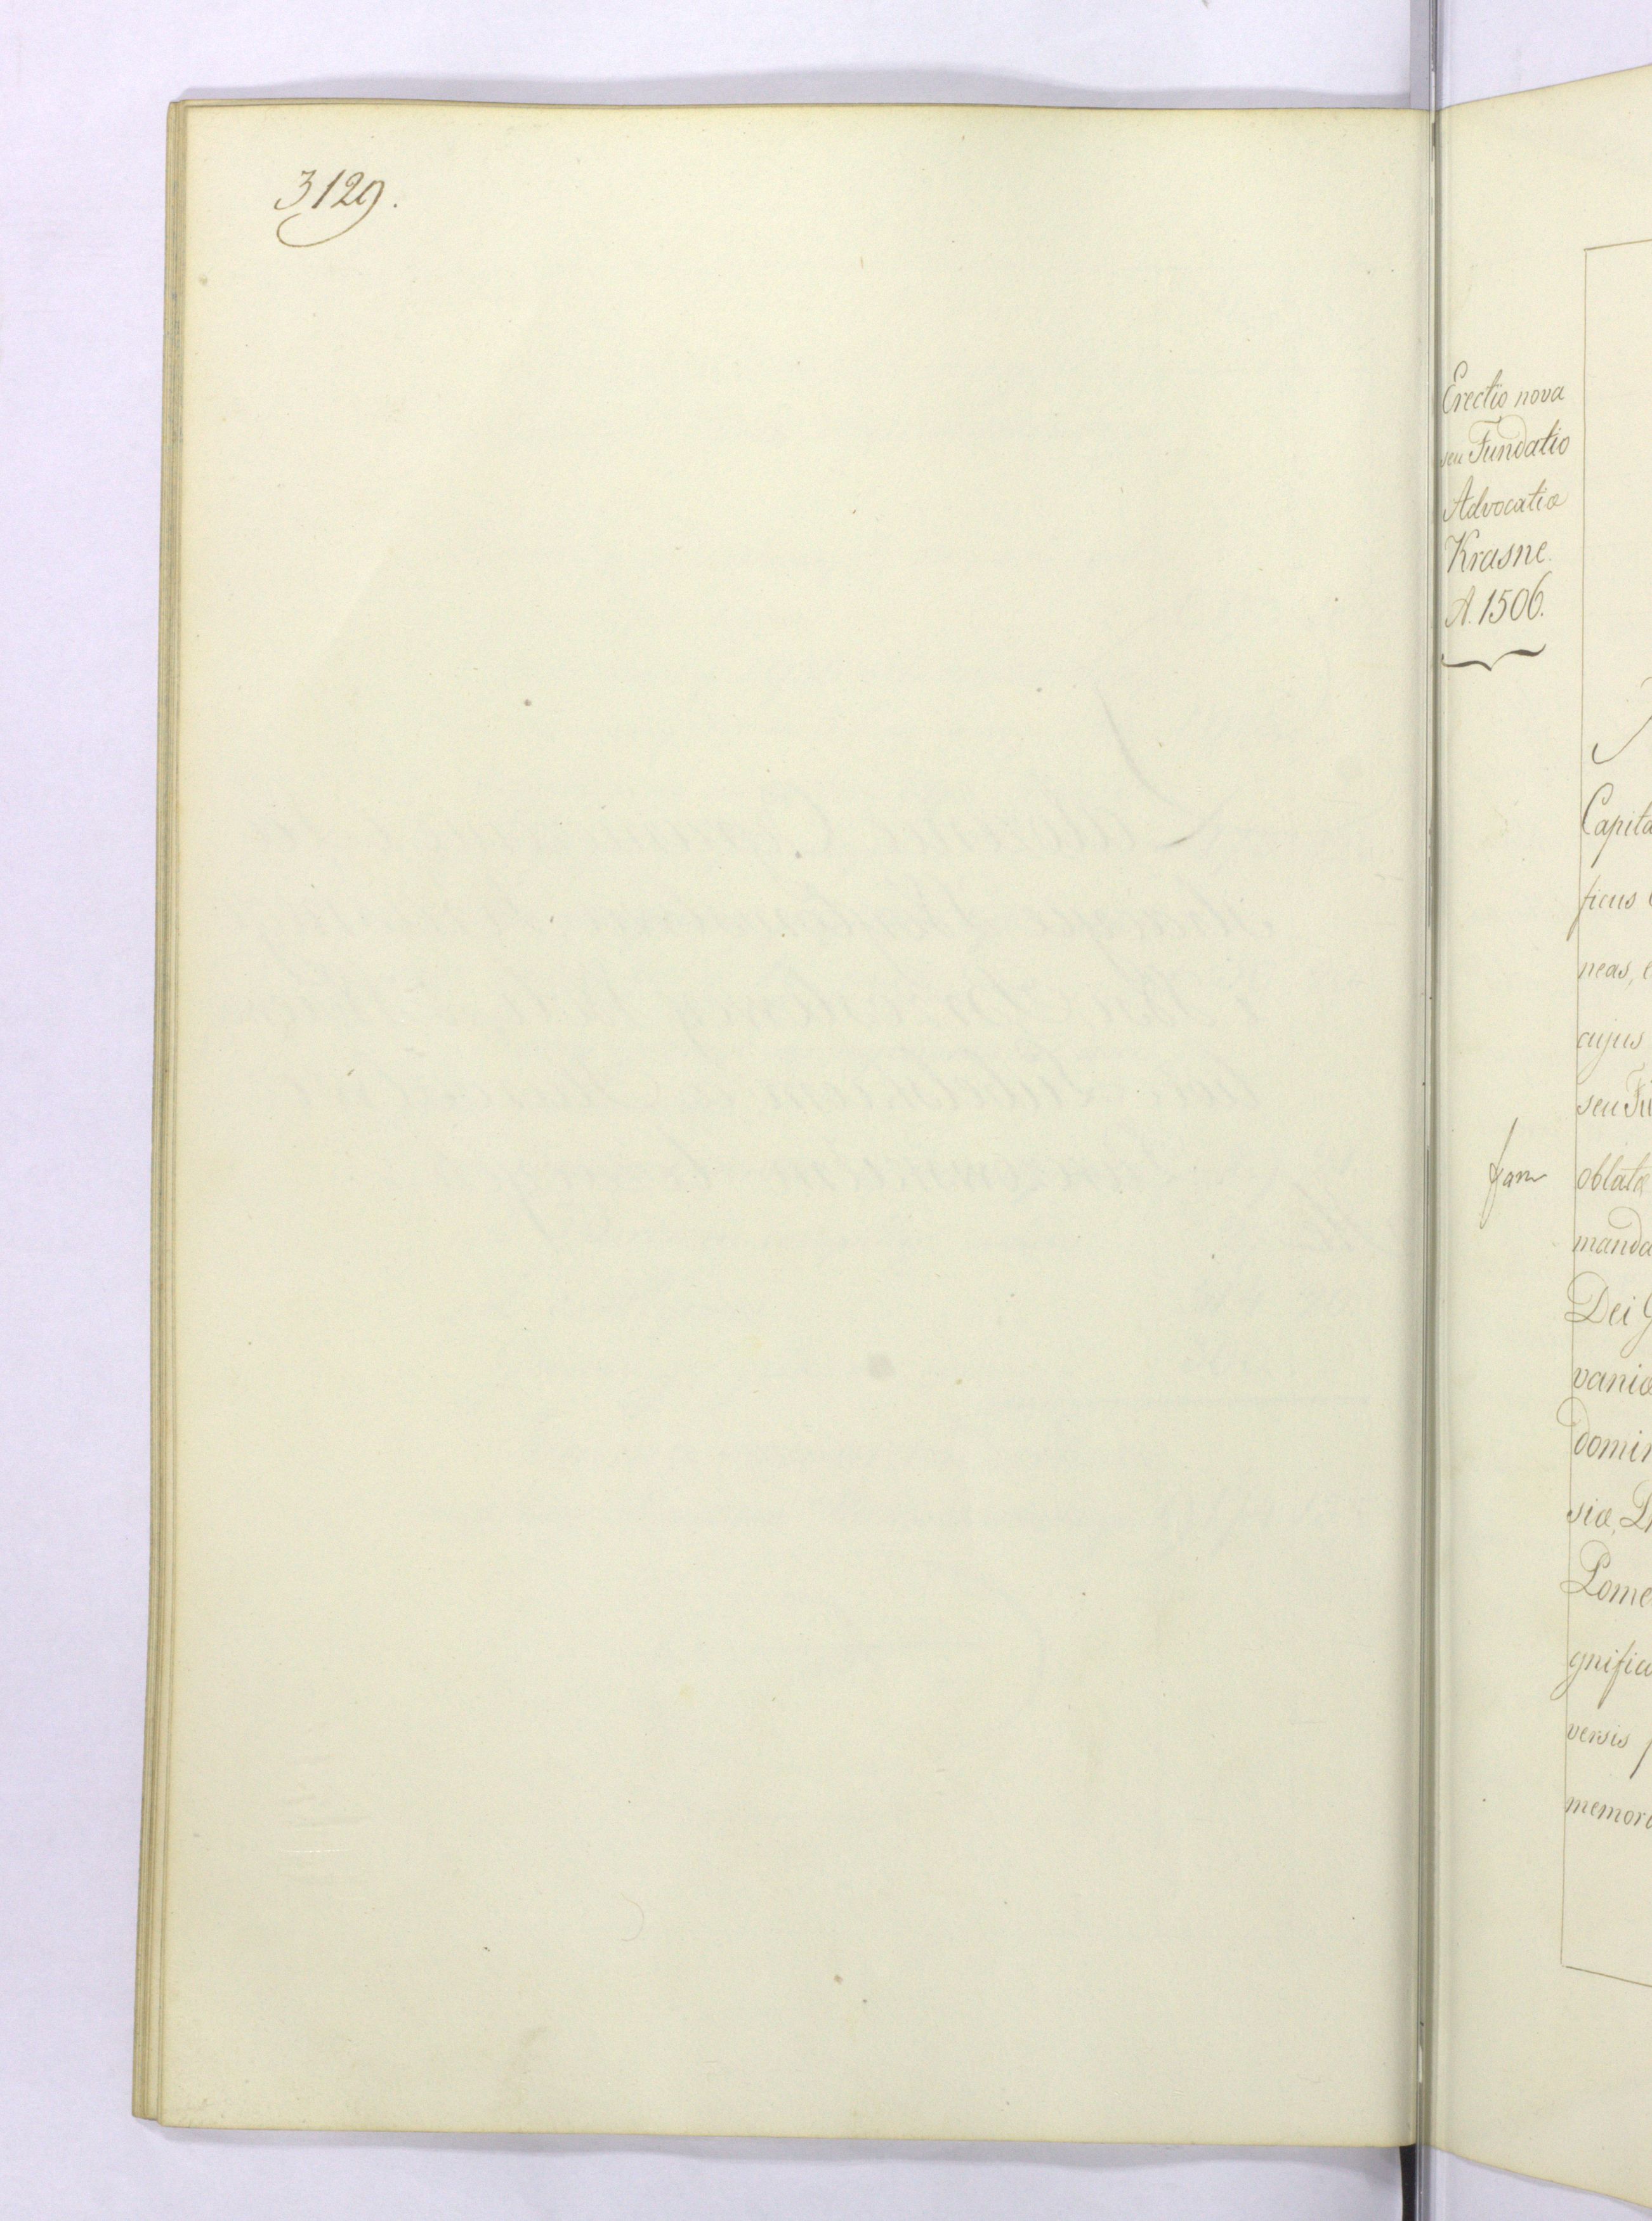 3129.
Erectio nova
seu Fundatio
Advocatiæ
Krasne.
A. 1506.
Capita
ficus
neas,
cujus
seu Fu
oblatæ
manda
Dei G
vaniæ
domin
siæ, Pr
Pome
gnific
versis p
memora